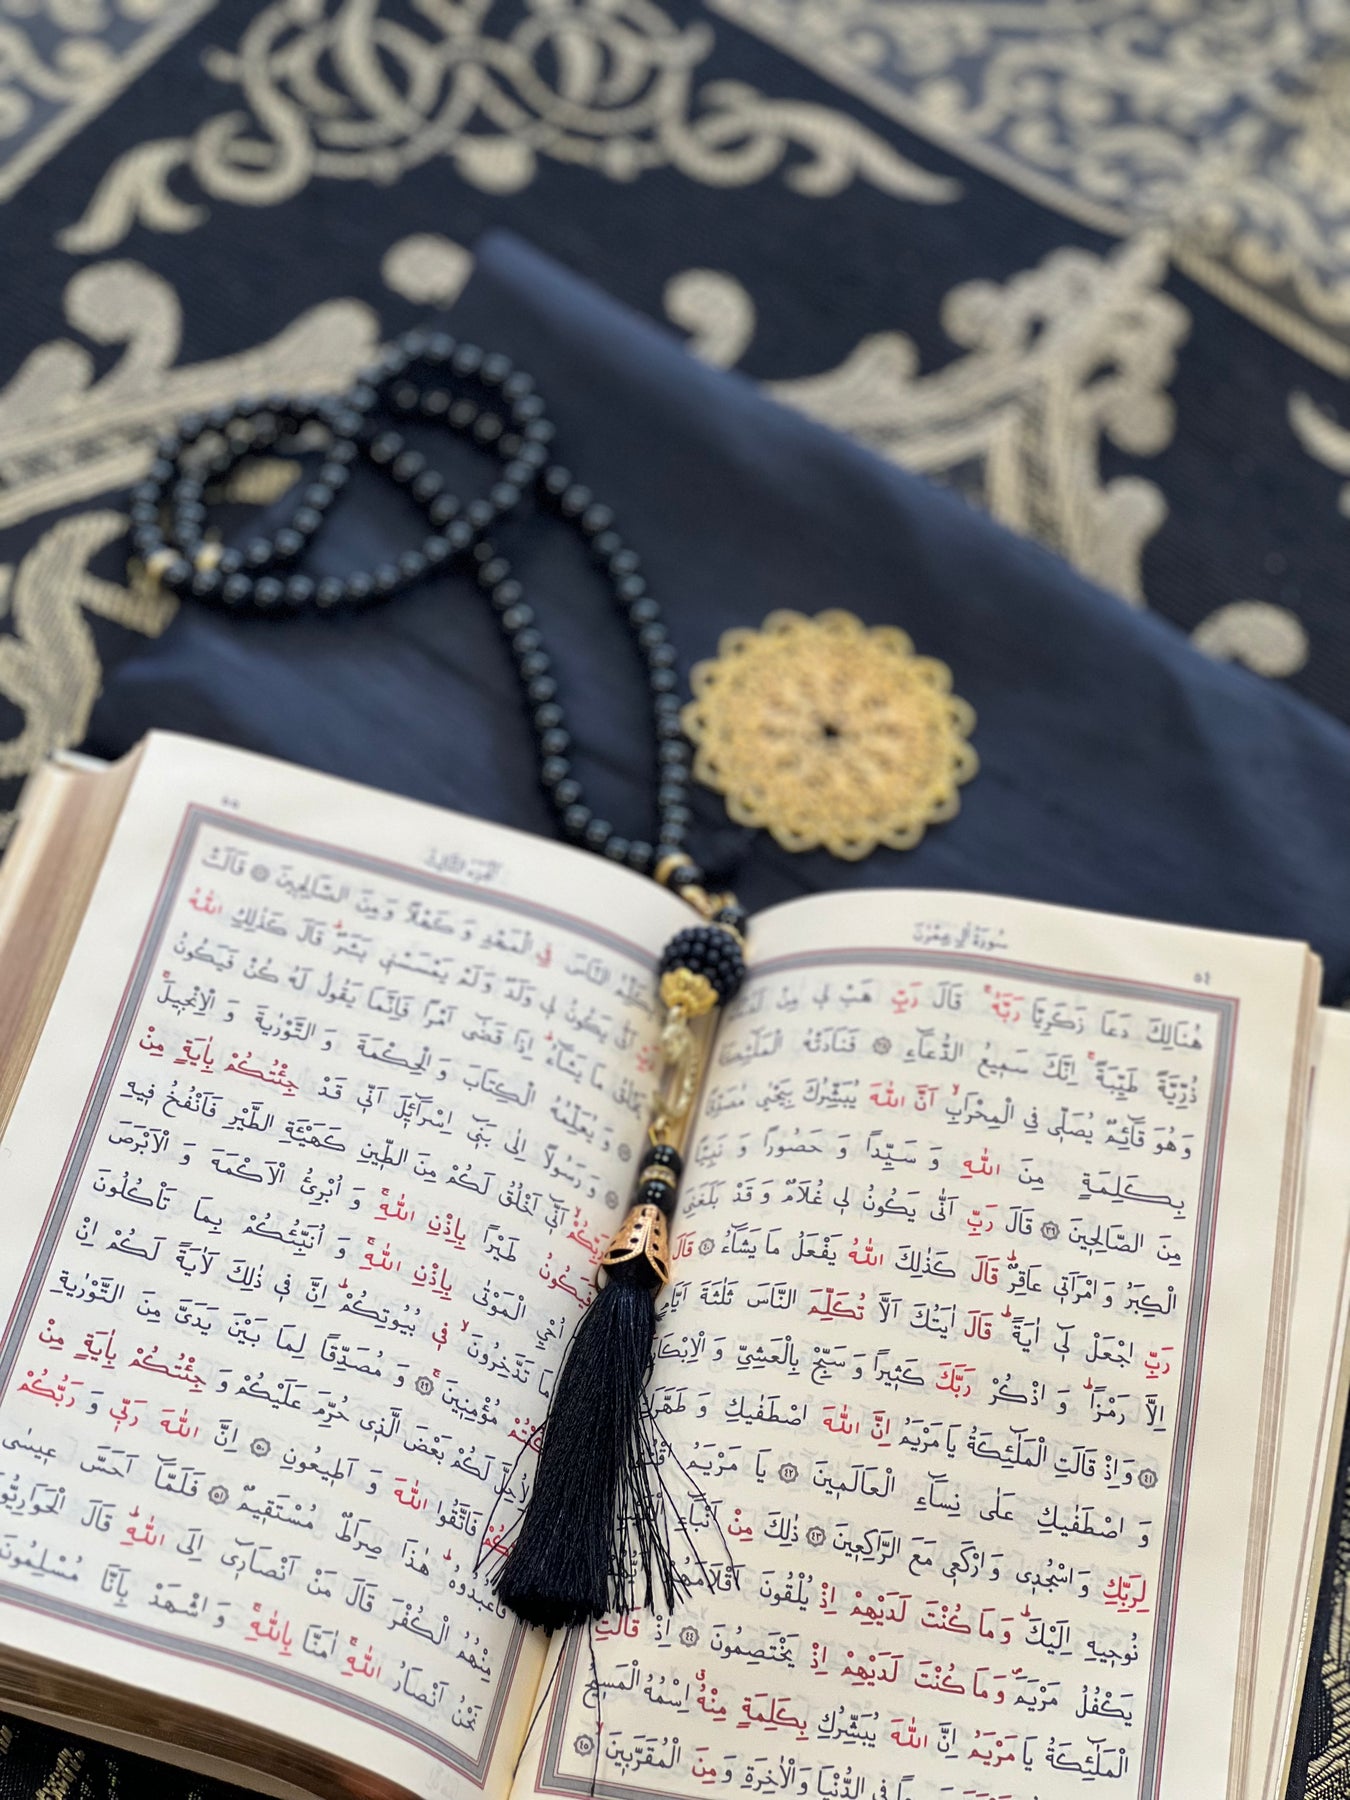 سُورَةُ اٰلِ عِمْرٰنَ
٥٤
هُنَالِكَ دَعَا زَكَرِيَّا رَبَّهُۚ قَالَ رَبِّ هَبْ لٖي مِنْ
ذُرِّيَّةً طَيِّبَةًۚ اِنَّكَ سَمٖيعُ الدُّعَٓاءِ ٣٨ فَنَادَتْهُ الْمَلٰٓئِكَةُ
وَهُوَ قَٓائِمٌ يُصَلّٖي فِي الْمِحْرَابِۙ اَنَّ اللّٰهَ يُبَشِّرُكَ بِيَحْيٰى مُصَدِّقًا
بِكَلِمَةٍ مِنَ اللّٰهِ وَ سَيِّداً وَ حَصُوراً وَ نَبِيًّا
مِنَ الصَّالِحٖينَ ٣٩ قَالَ رَبِّ اَنّٰى يَكُونُ لٖي غُلَامٌ وَ قَدْ بَلَغَنِيَ
الْكِبَرُ وَ امْرَاَتٖي عَاقِرٌۜ قَالَ كَذٰلِكَ اللّٰهُ يَفْعَلُ مَا يَشَٓاءُ ٤٠ قَالَ
رَبِّ اجْعَلْ لٖٓي اٰيَةًۜ قَالَ اٰيَتُكَ اَلَّا تُكَلِّمَ النَّاسَ ثَلٰثَةَ اَيَّامٍ
اِلَّا رَمْزاًۜ وَ اذْكُرْ رَبَّكَ كَثٖيراً وَ سَبِّحْ بِالْعَشِيِّ وَ الْاِبْكَارِ
٤١ وَ اِذْ قَالَتِ الْمَلٰٓئِكَةُ يَا مَرْيَمُ اِنَّ اللّٰهَ اصْطَفٰيكِ وَ طَهَّرَكِ
وَ اصْطَفٰيكِ عَلٰى نِسَٓاءِ الْعَالَمٖينَ ٤٢ يَا مَرْيَمُ
لِرَبِّكِ وَ اسْجُدٖي وَ ارْكَعٖي مَعَ الرَّاكِعٖينَ ٤٣ ذٰلِكَ مِنْ اَنْبَٓاءِ
نُوحٖيهِ اِلَيْكَۜ وَ مَا كُنْتَ لَدَيْهِمْ اِذْ يُلْقُونَ اَقْلَامَهُمْ
يَكْفُلُ مَرْيَمَۖ وَ مَا كُنْتَ لَدَيْهِمْ اِذْ يَخْتَصِمُونَ ٤٤ اِذْ قَالَتِ
الْمَلٰٓئِكَةُ يَا مَرْيَمُ اِنَّ اللّٰهَ يُبَشِّرُكِ بِكَلِمَةٍ مِنْهُۗ اِسْمُهُ الْمَسٖيحُ
فِي الدُّنْيَا وَ الْاٰخِرَةِ وَ مِنَ الْمُقَرَّبٖينَۙ ٤٥
٥٥
اَلْجُزْءُ الثَّالِثُ
يُكَلِّمُ النَّاسَ فِي الْمَهْدِ وَ كَهْلاً وَ مِنَ الصَّالِحٖينَ ٤٦ قَالَتْ
رَبِّ اَنّٰى يَكُونُ لٖي وَلَدٌ وَ لَمْ يَمْسَسْنٖي بَشَرٌۜ قَالَ كَذٰلِكِ اللّٰهُ
يَخْلُقُ مَا يَشَٓاءُۜ اِذَا قَضٰٓى اَمْراً فَاِنَّمَا يَقُولُ لَهُ كُنْ فَيَكُونُ
٤٧ وَ يُعَلِّمُهُ الْكِتَابَ وَ الْحِكْمَةَ وَ التَّوْرٰيةَ وَ الْاِنْجٖيلَۚ
٤٨ وَ رَسُولاً اِلٰى بَنٖٓي اِسْرَٓائٖلَ اَنّٖي قَدْ جِئْتُكُمْ بِاٰيَةٍ مِنْ
رَبِّكُمْۙ اَنّٖٓي اَخْلُقُ لَكُمْ مِنَ الطّٖينِ كَهَيْـَٔةِ الطَّيْرِ فَاَنْفُخُ فٖيهِ
فَيَكُونُ طَيْراً بِاِذْنِ اللّٰهِۚ وَ اُبْرِئُ الْاَكْمَهَ وَ الْاَبْرَصَ
اُحْيِ الْمَوْتٰى بِاِذْنِ اللّٰهِۚ وَ اُنَبِّئُكُمْ بِمَا تَأْكُلُونَ
مَا تَدَّخِرُونَۙ فٖي بُيُوتِكُمْۜ اِنَّ فٖي ذٰلِكَ لَاٰيَةً لَكُمْ اِنْ
كُنْتُمْ مُؤْمِنٖينَۚ ٤٩ وَ مُصَدِّقًا لِمَا بَيْنَ يَدَيَّ مِنَ التَّوْرٰيةِ
لِاُحِلَّ لَكُمْ بَعْضَ الَّذٖي حُرِّمَ عَلَيْكُمْ وَ جِئْتُكُمْ بِاٰيَةٍ مِنْ
فَاتَّقُوا اللّٰهَ وَ اَطٖيعُونِ ٥٠ اِنَّ اللّٰهَ رَبّٖي وَ رَبُّكُمْ
فَاعْبُدُوهُۜ هٰذَا صِرَاطٌ مُسْتَقٖيمٌ ٥١ فَلَمَّٓا اَحَسَّ عٖيسٰى
مِنْهُمُ الْكُفْرَ قَالَ مَنْ اَنْصَارٖٓي اِلَى اللّٰهِۜ قَالَ الْحَوَارِيُّونَ
نَحْنُ اَنْصَارُ اللّٰهِۚ اٰمَنَّا بِاللّٰهِۚ وَ اشْهَدْ بِاَنَّا مُسْلِمُونَ